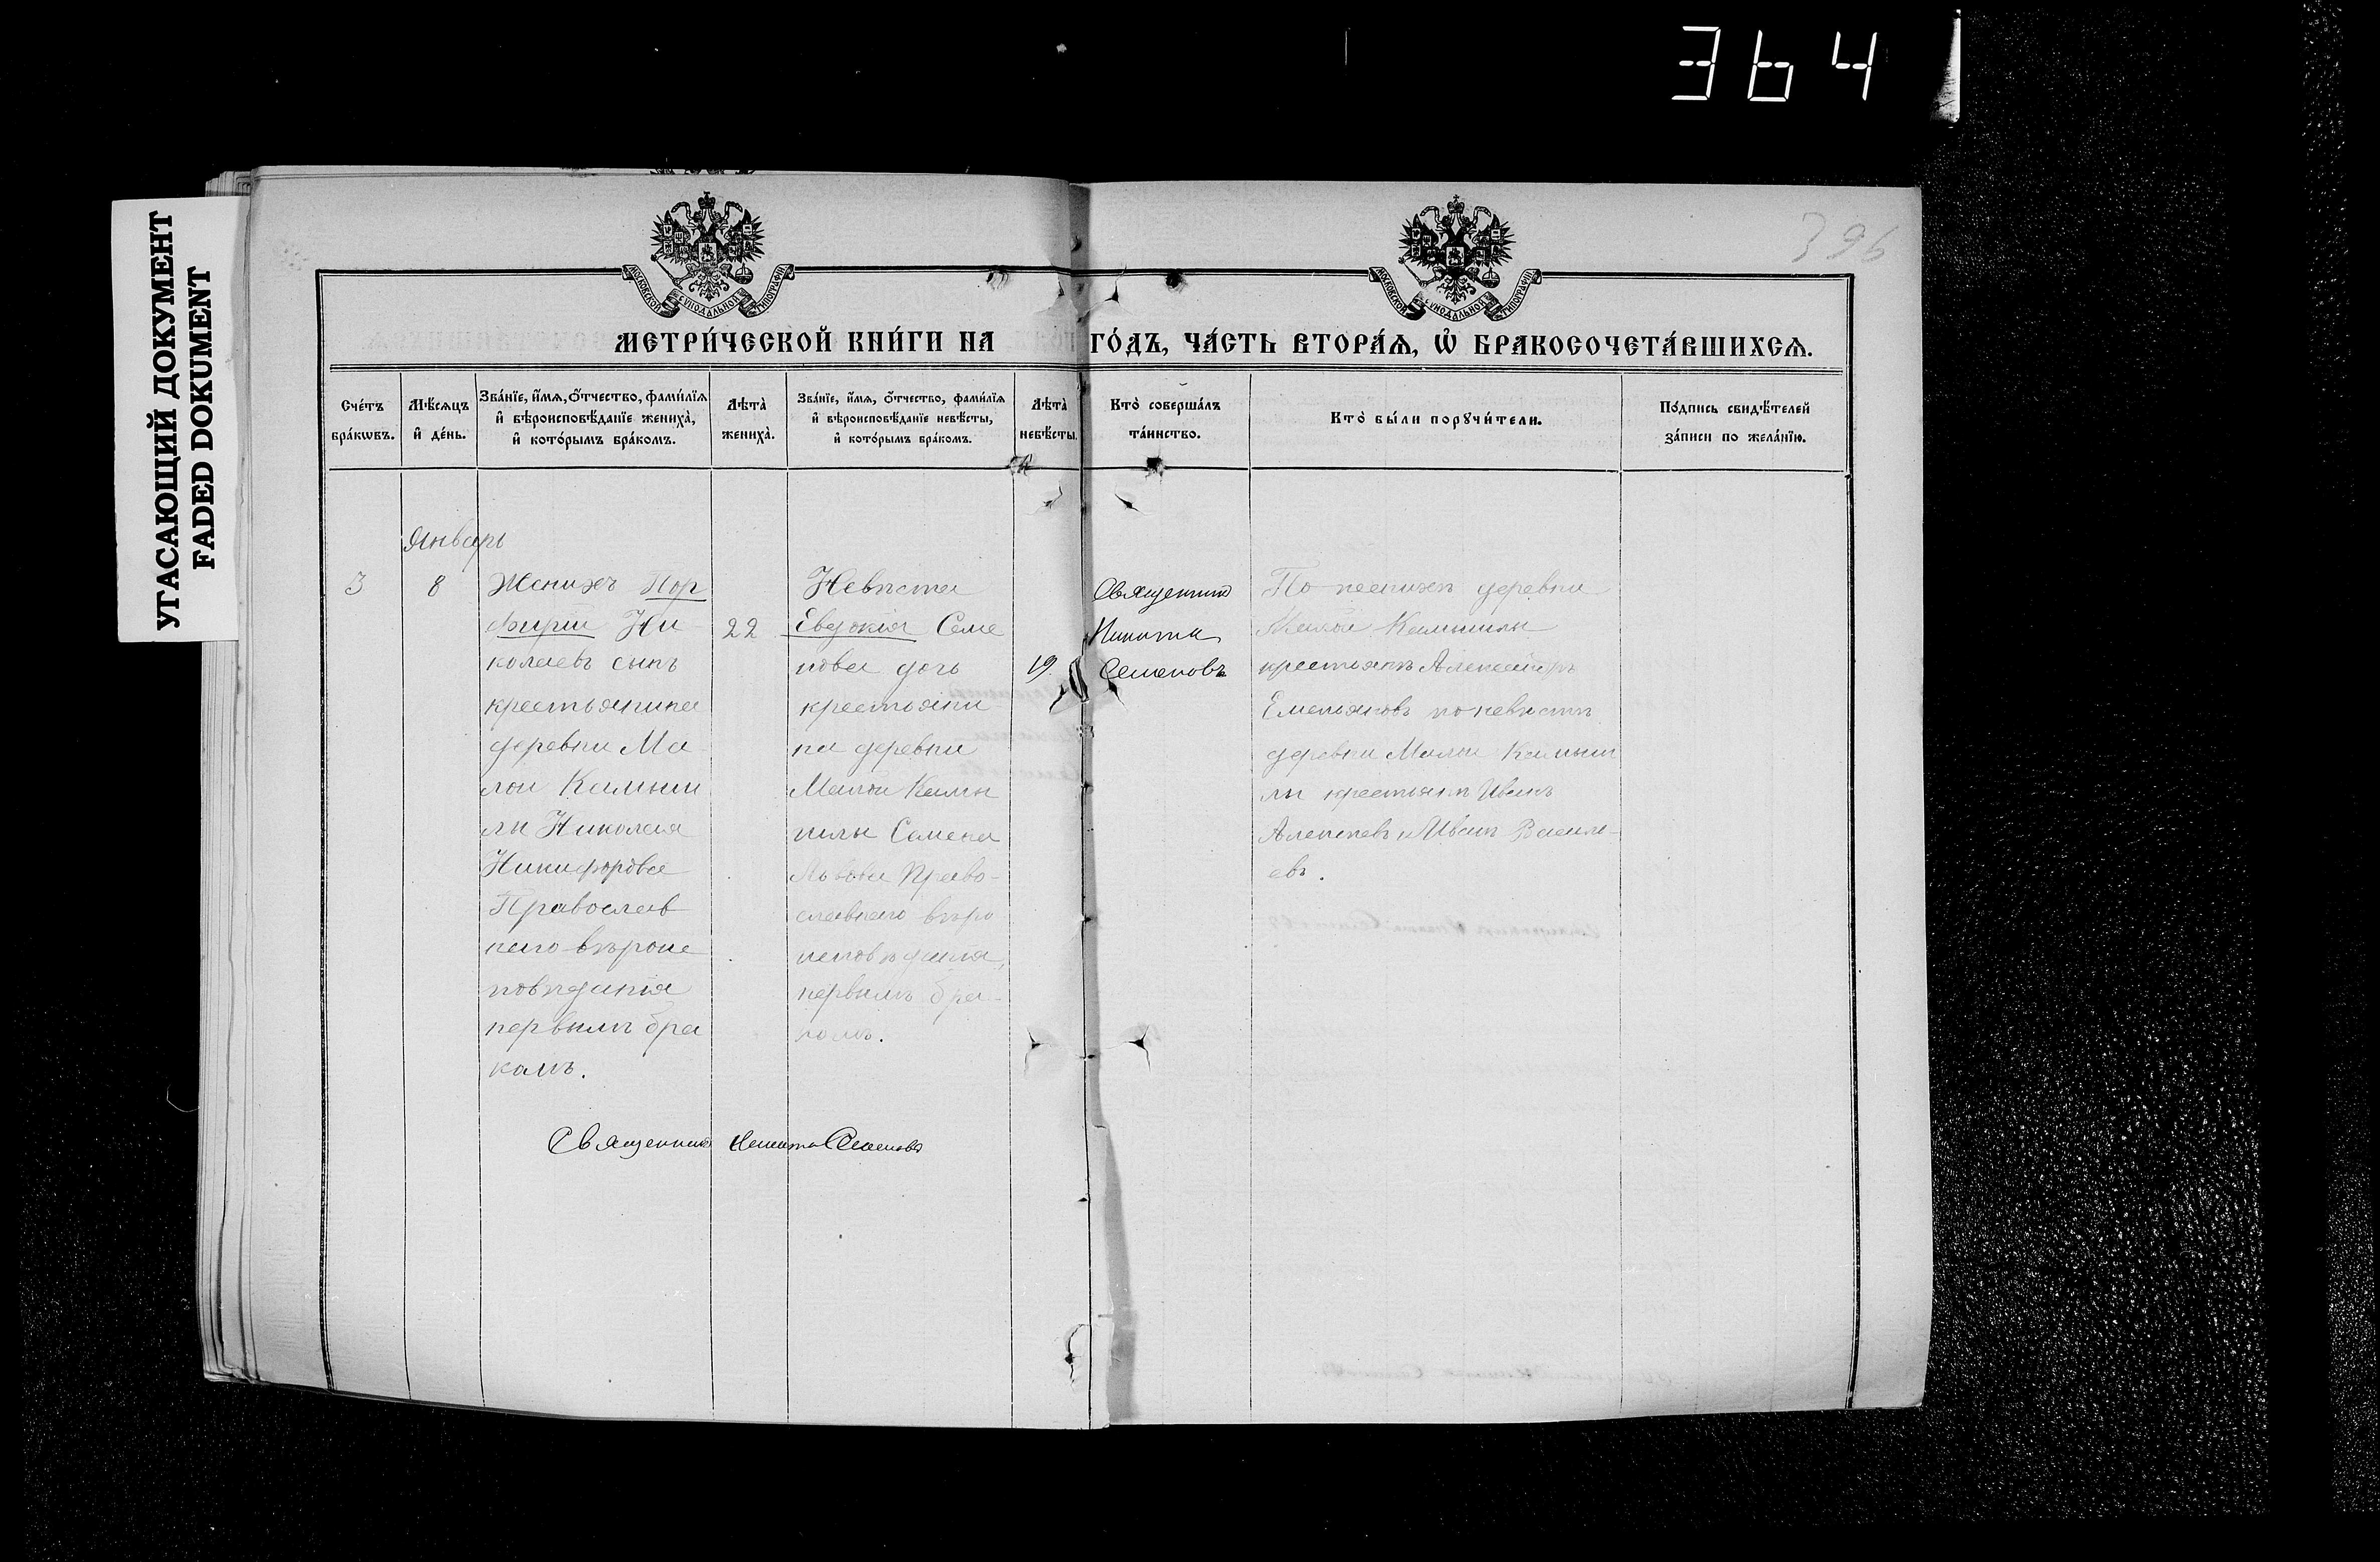 364
УГАСАЮЩИЙ ДОКУМЕНТ
FADED DOKUMENT
396
МОСКОВСКОЙ СѴНОДАЛЬНОЙ ТИПОГРАФІИ
МОСКОВСКОЙ СѴНОДАЛЬНОЙ ТИПОГРАФІИ
МЕТРИ́ЧЕСКОЙ КНИ́ГИ НА ГО́ДЪ, ЧА́СТЬ ВТОРА́Ѧ, Ѽ БРАКОСОЧЕТА́ВШИХСѦ.
Сче́тъ
бра́кѡвъ.
Мѣ́сѧцъ
и҆ де́нь.
Зва́нїе, и҆́мѧ, ѻ҆́тчество, фами́лїѧ
и҆ вѣроисповѣ́данїе жениха̀,
и҆ кото́рымъ бра́комъ.
Лѣта̀
жениха̀.
Зва́нїе, и҆́мѧ, ѻ҆́тчество, фами́лїѧ
и҆ вѣроисповѣ́данїе невѣ́сты,
и҆ кото́рымъ бра́комъ.
Лѣта̀
невѣ́сты.
Кто̀ соверша́лъ
та́инство.
Кто̀ бы́ли порꙋчи́тели.
По́дпись свидѣ́телей
за́писи по жела́нїю.
Январь
3
8
Женихъ Пор
фирій Ни-
колаевъ сынъ
крестьянина
деревни Ма-
лой Камыш
лы Николая
Никифорова
Православ
наго вѣроис
повѣданія
первымъ бра
комъ.
22
Невѣста
Евдокія Семе
нова дочь
крестьяни
на деревни
Малой Камы
шлы Семена
Львова Право-
славнаго вѣро
исповѣданія,
первымъ бра-
комъ.
19
Священникъ
Никита
Семеновъ
По женихѣ деревни
Малой Камышлы
крестьянъ Александръ
Емельяновъ по невѣстѣ
деревни Малой Камыш
лы крестьянъ Иванъ
Алексѣевъ и Иванъ Василь-
евъ.
Священникъ Никита Семеновъ